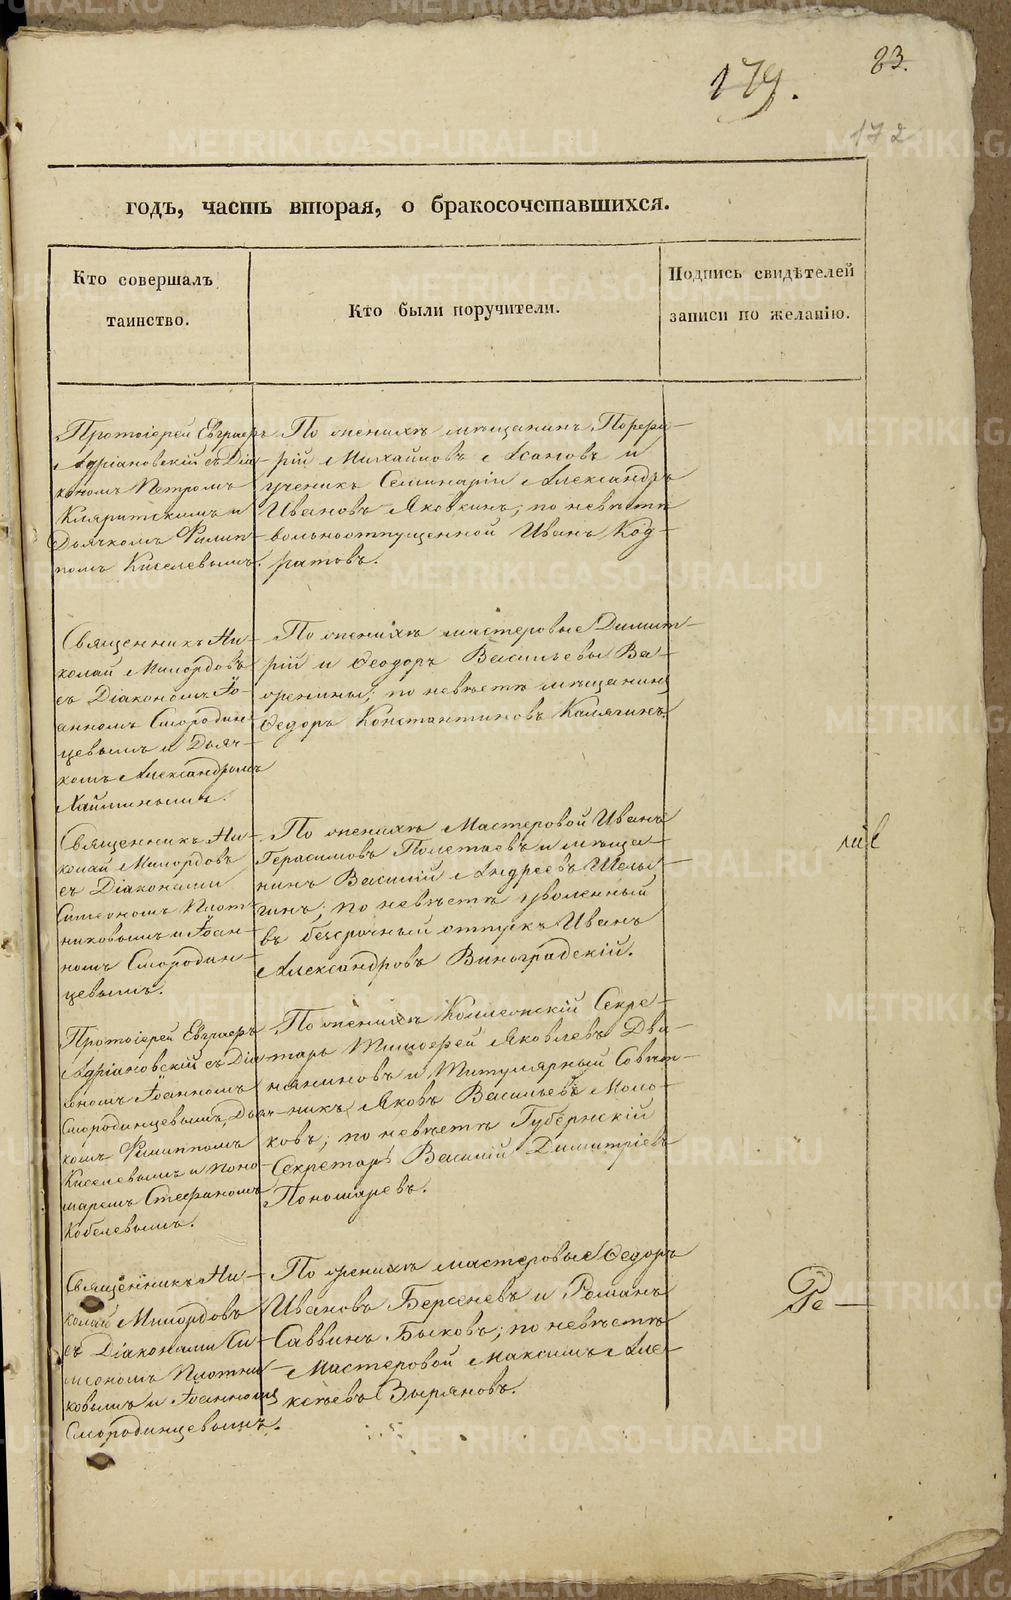 179.
83.
172
годъ, часть вторая, о бракосочетавшихся.
Кто совершалъ
таинство.
Кто были поручители.
Подпись свидѣтелей
записи по желанію.
Протоіерей Евграфъ
Адріановскій съ Діа-
кономъ Петромъ
и
Дьячкомъ Филип-
помъ Киселевымъ.
По женихѣ мѣщанинъ Порфи-
рій Михайловъ и
ученикъ Семинаріи Александръ
Ивановъ Яковкинъ; по невѣстѣ
вольноотпущенной Иванъ Код-
ратовъ.
Священникъ Ни-
колай Милордовъ
съ Діакономъ Іо-
анномъ Смородин-
цевымъ и Дьяч-
комъ Александромъ
По женихѣ мастеровые Димит-
рій и Ѳеодоръ Васильевы Ва-
; по невѣстѣ мѣщанинъ
Ѳедоръ Константиновъ Калягинъ.
Священникъ Ни-
колай Милордовъ
съ Діаконами
Симеономъ Плот-
никовымъ и Іоан-
номъ Смородин-
цевымъ.
По женихѣ Мастеровой Иванъ
Герасимовъ Полетаевъ и мѣща-
нинъ Василій Андреевъ Шелы-
гинъ; по невѣстѣ уволенный
въ безсрочный отпускъ Иванъ
Александровъ Виноградскій.
Протоіерей Евграфъ
Адріановскій съ Діа-
кономъ Іоанномъ
Смородинцевымъ, Дьяч-
комъ Филиппомъ
Киселевымъ и Поно-
маремъ Стефаномъ
Кобелевымъ.
По женихѣ Коллежскій Секре-
тарь Тимофей Яковлевъ Два-
и Титулярный Совѣт-
никъ Яковъ Васильевъ Моло-
ковъ; по невѣстѣ Губернскій
Секретарь Василій Димитріевъ
Пономаревъ.
Священникъ Ни-
колай Милордовъ
съ Діаконами Си-
меономъ Плотни-
ковымъ и Іоанномъ
Смородинцевымъ.
По женихѣ мастеровые Ѳедоръ
Ивановъ Берсеневъ и Романъ
Саввинъ Быковъ; по невѣстѣ
Мастеровой Максимъ Але-
ксѣевъ Зыряновъ.
Ре —
METRIKI.GASO-URAL.RU